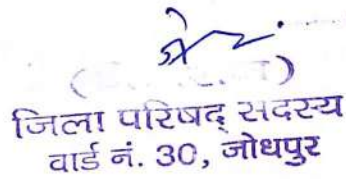 जिला परिषद् सदस्य
वार्ड नं. 30, जोधपुर